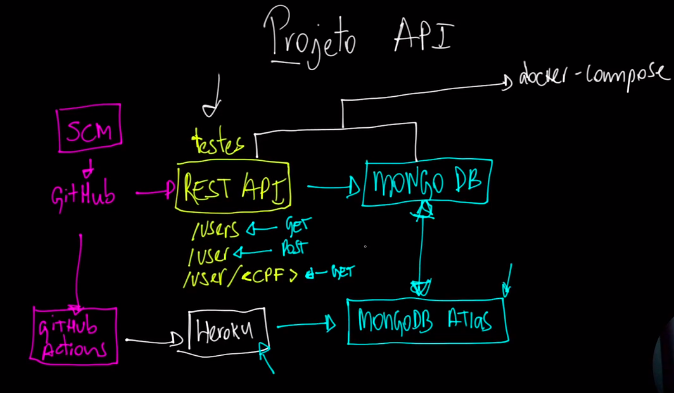 Projeto API
docker-compose
SCM
testes
GitHub
REST API
MONGO DB
/users GET
/user POST
/user/<CPF> GET
GitHub
Actions
Heroku
MONGODB Atlas